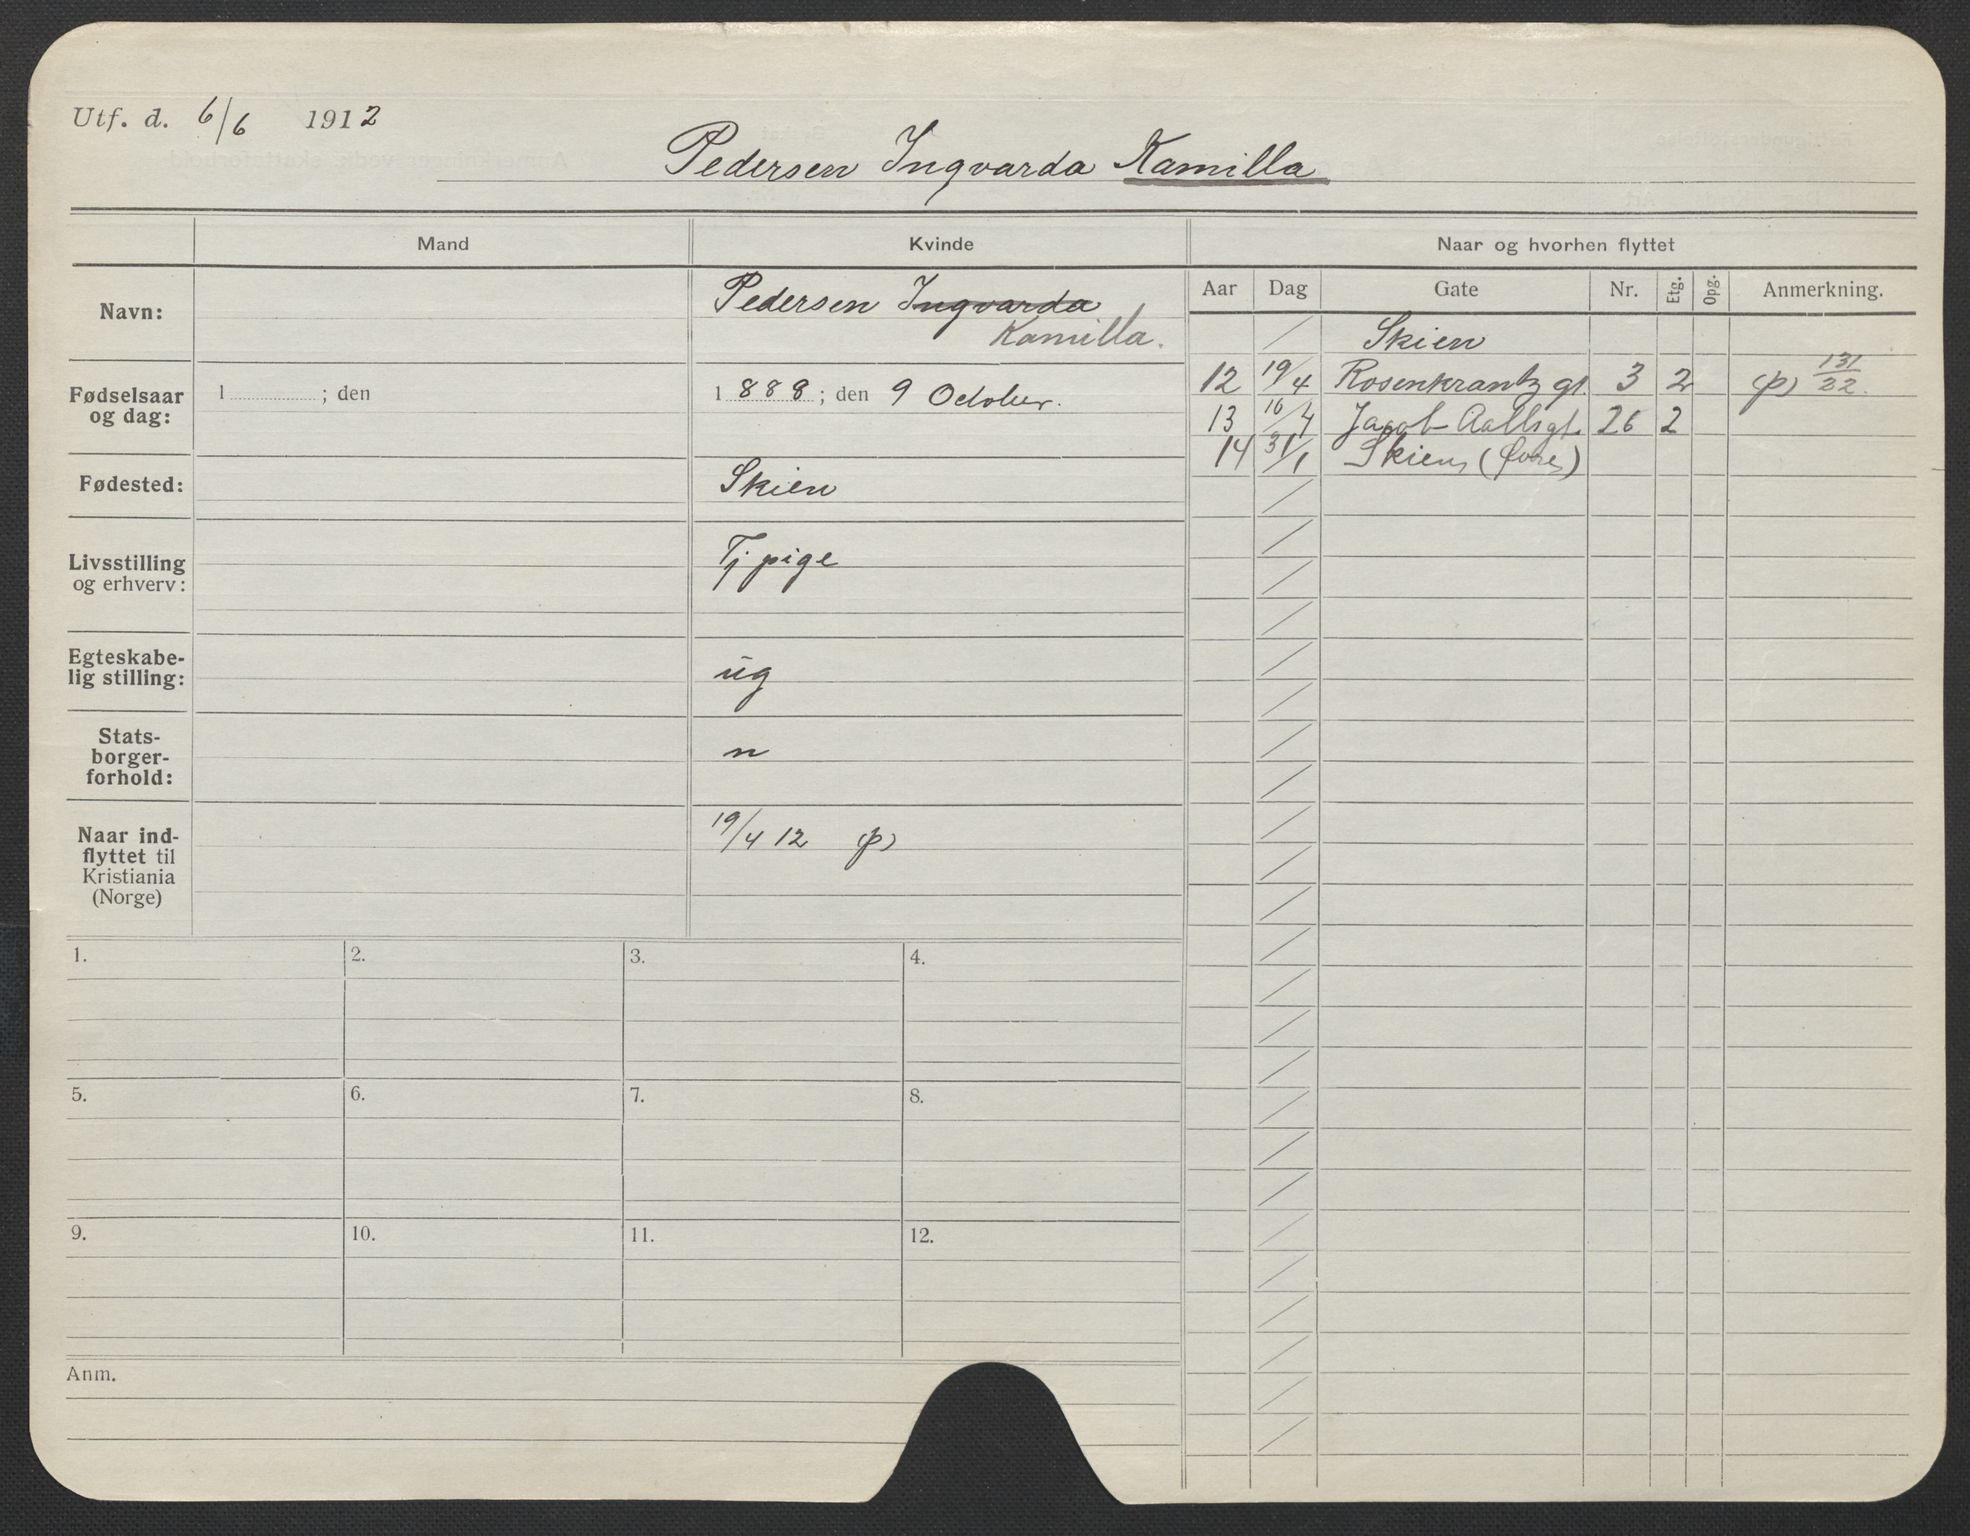 Utf. d. 6/6 1912
Pedersen Ingvarda Kamilla
Mand
Kvinde
Naar og hvorhen flyttet
Aar Dag Gate Nr. Etg. Opg. Anmerkning.
Navn:
Pedersen Ingvarda
Kamilla.
Fødselsaar
og dag:
1 ; den
1888 ; den 9 October.
Fødested:
Skien
Livsstilling
og erhverv:
Tj pige
Egteskabe-
lig stilling:
ug
Stats-
borger-
forhold:
n
Naar ind-
flyttet til
Kristiania
(Norge)
19/4 12 (p)
/ Skien
12 19/4 Rosenkrantz gt. 3 2 (p) 131/22.
13 16/4 Jacob Aallsgt. 26 2
14 31/1 Skien,
1. 2. 3. 4.
5. 6. 7. 8.
9. 10. 11. 12.
Anm.